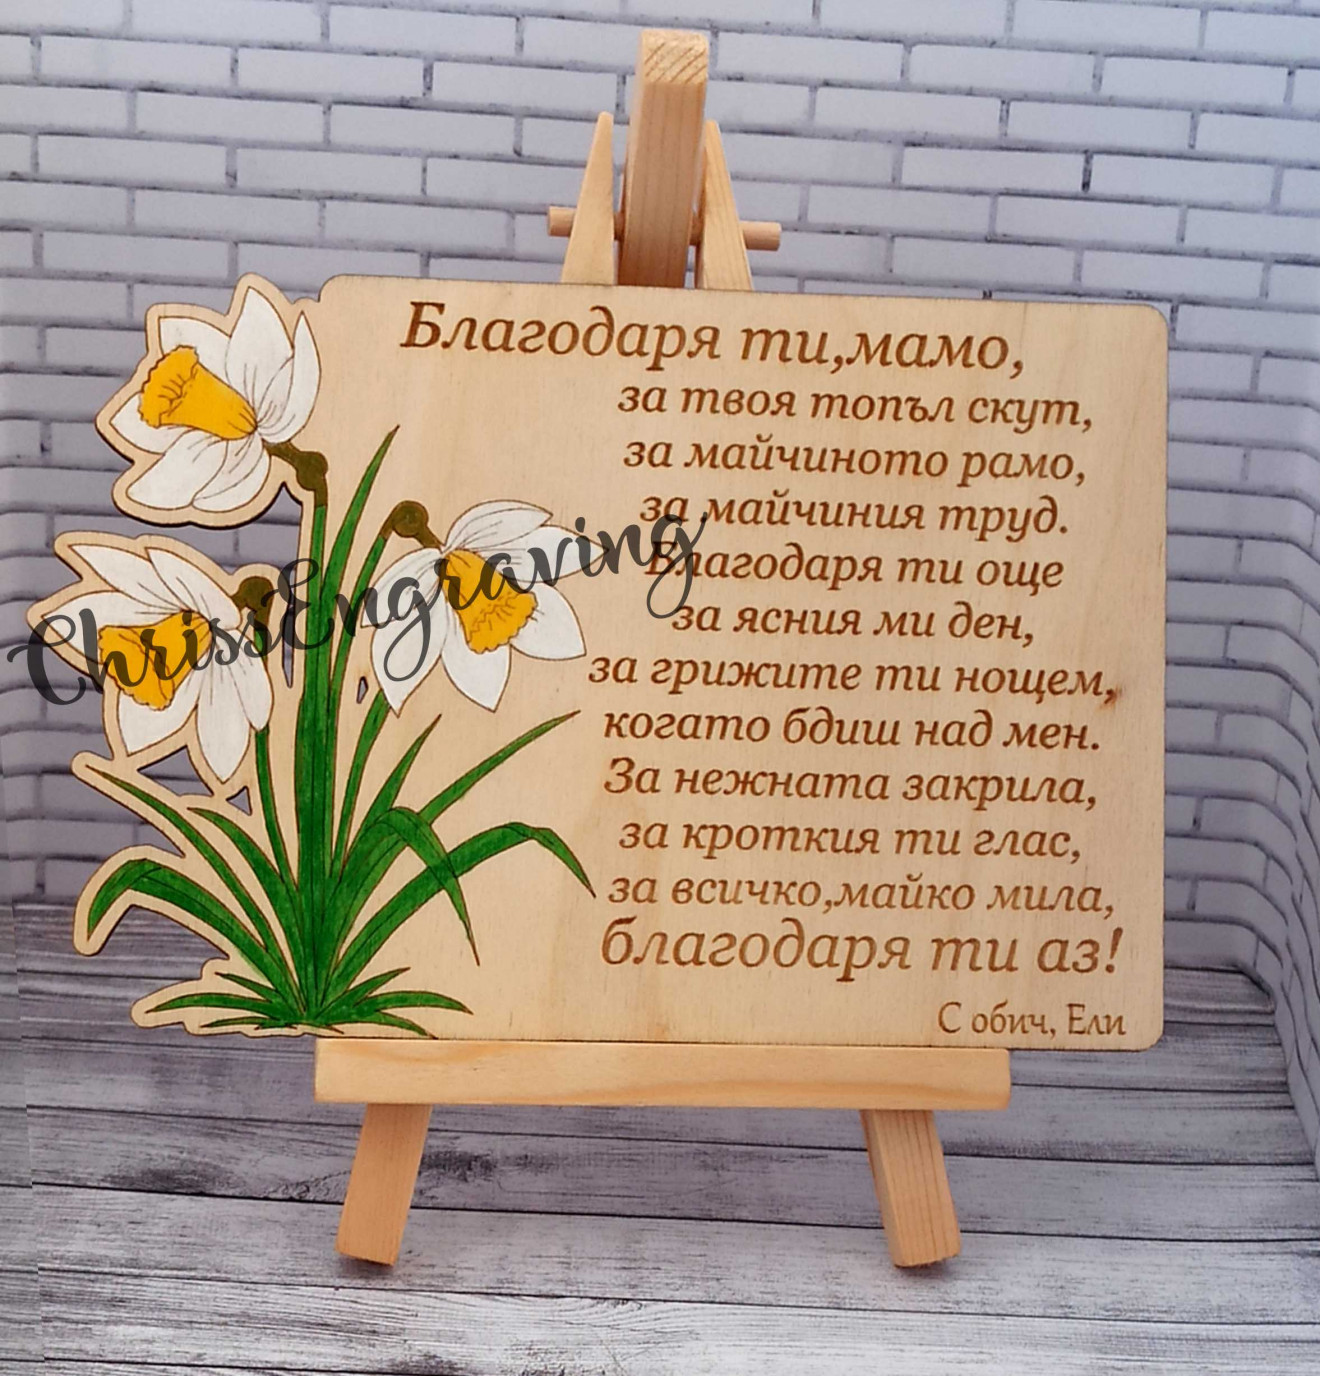 Благодаря ти,мамо,
за твоя топъл скут,
за майчиното рамо,
за майчиния труд.
Благодаря ти още
за ясния ми ден,
за грижите ти нощем,
когато бдиш над мен.
За нежната закрила,
за кроткия ти глас,
за всичко,майко мила,
благодаря ти аз!
С обич, Ели
ChrissEngraving